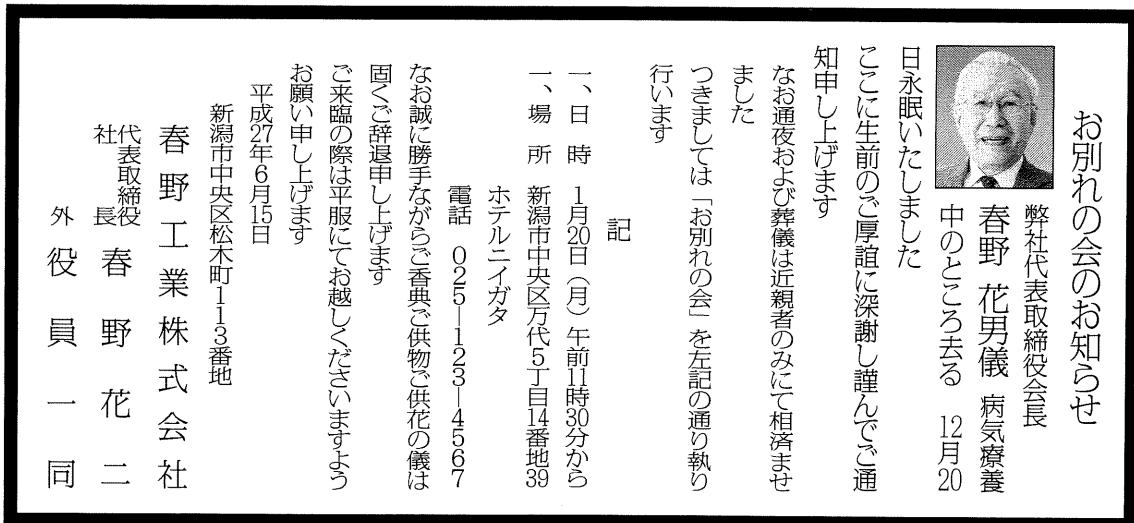 お別れの会のお知らせ
弊社代表取締役会長
春野 花男儀 病気療養
中のところ去る 12月20
日永眠いたしました
ここに生前のご厚誼に深謝し謹んでご通
知申し上げます
なお通夜および葬儀は近親者のみにて相済ませ
ました
つきましては「お別れの会」を左記の通り執り
行います
記
一、日 時 1月20日(月)午前11時30分から
一、場 所 新潟市中央区万代5丁目14番地39
ホテルニイガタ
電話 025―123―4567
なお誠に勝手ながらご香典ご供物ご供花の儀は
固くご辞退申し上げます
ご来臨の際は平服にてお越しくださいますよう
お願い申し上げます
平成27年6月15日
新潟市中央区松木町113番地
春野工業株式会社
代表取締役社長 春野花二
外 役員一同